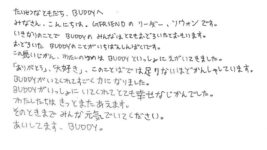 たいせつなともだち、BUDDYへ
みなさん、こんにちは。GFRIENDの リーダー、ソウォン です。
いきなりのことで BUDDYの みんなは とてもおどろいたとおもいます。
わたしたちは BUDDYのことが いちばんしんぱいです。
この長いじかん、わたしのゆめは BUDDYと いっしょに えがいてきました。
「ありがとう」、「大好き」、このことばでは 足りないほどかんしゃしています。
BUDDYが いてくれて すごく 力に なりました。
BUDDYが いっしょに いてくれて とても 幸せな じかんでした。
わたしたちは きっとまた あえます。
そのときまで みんな 元気で いてください。
あいしてます、BUDDY。